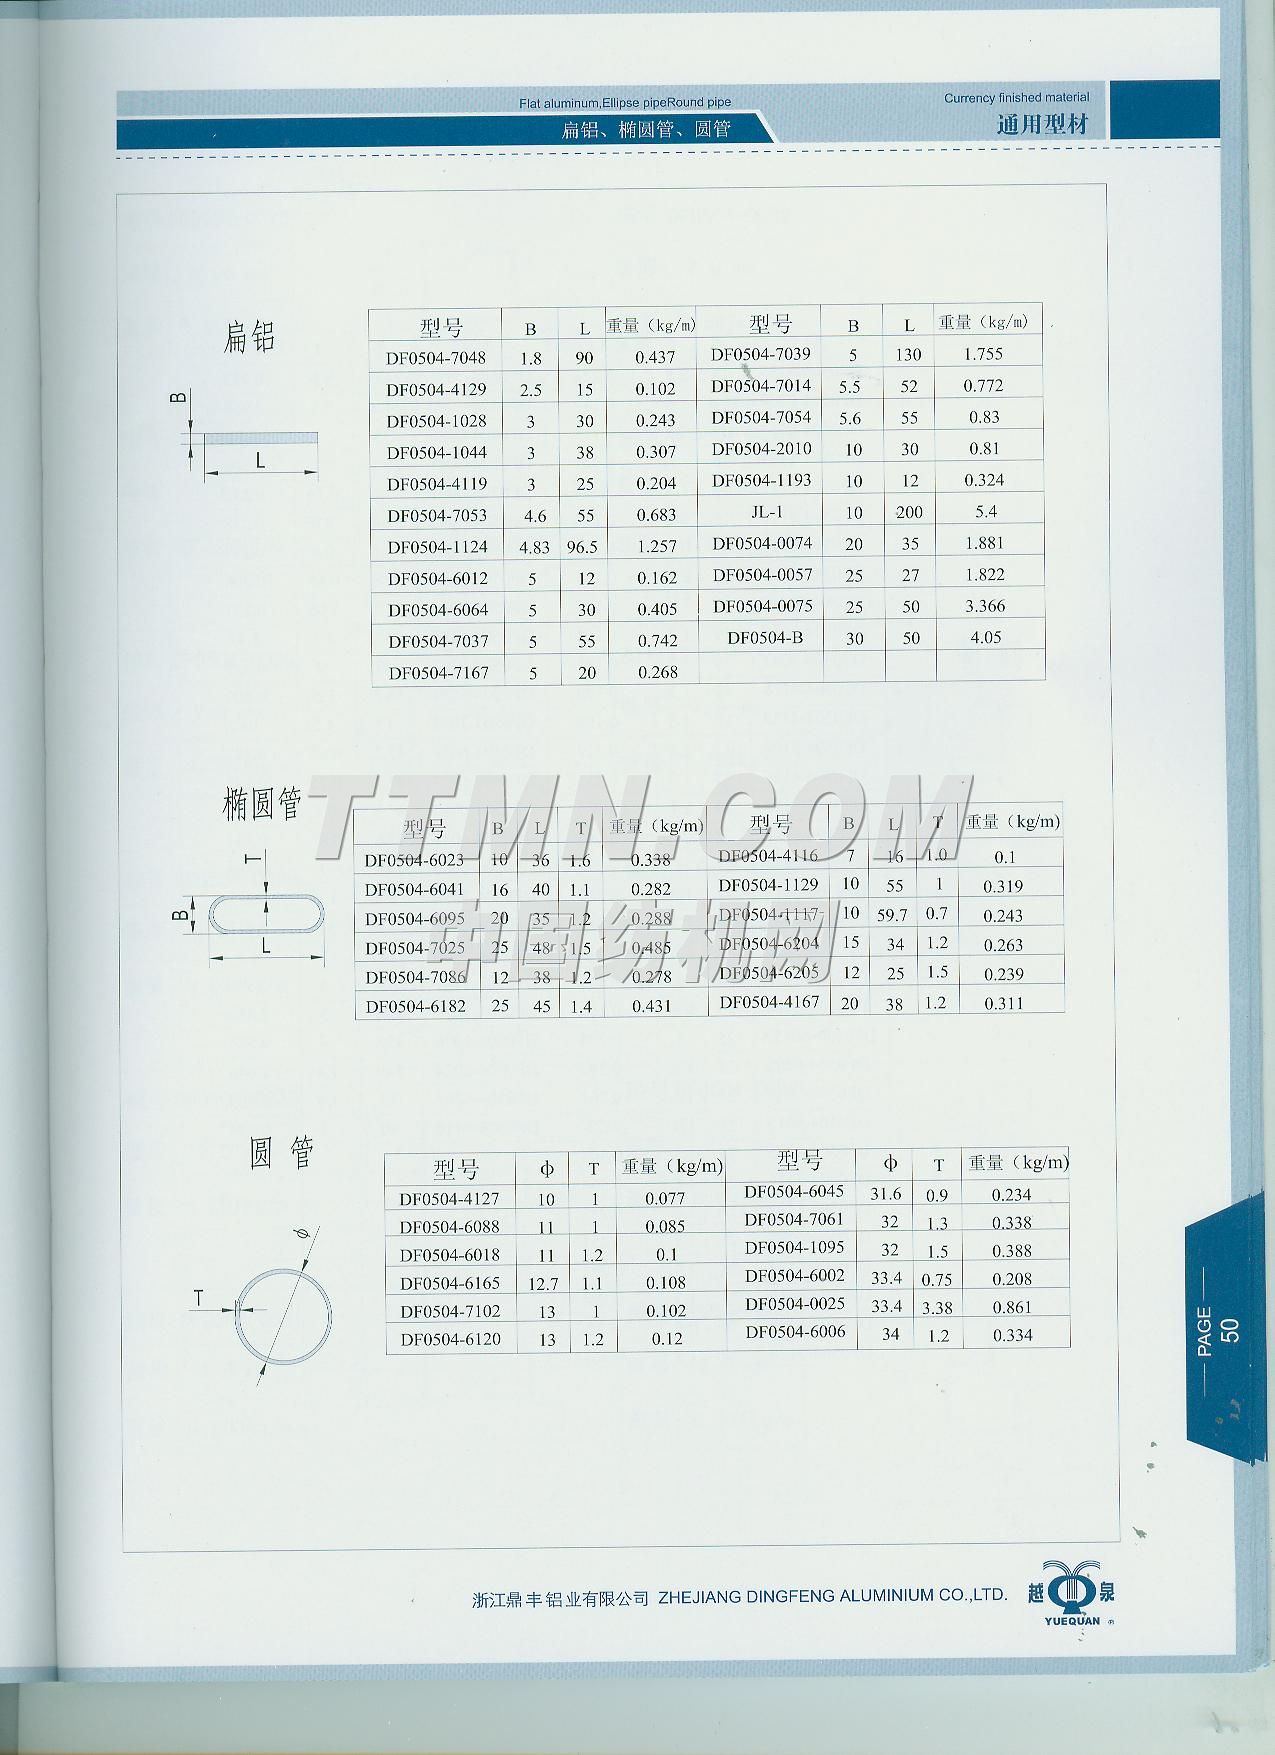 Flat aluminum,Ellipse pipeRound pipe
扁铝、椭圆管、圆管
Currency finished material
通用型材
扁铝
B
L
型号 B L 重量（kg/m） 型号 B L 重量（kg/m）
DF0504-7048 1.8 90 0.437 DF0504-7039 5 130 1.755
DF0504-4129 2.5 15 0.102 DF0504-7014 5.5 52 0.772
DF0504-1028 3 30 0.243 DF0504-7054 5.6 55 0.83
DF0504-1044 3 38 0.307 DF0504-2010 10 30 0.81
DF0504-4119 3 25 0.204 DF0504-1193 10 12 0.324
DF0504-7053 4.6 55 0.683 JL-1 10 200 5.4
DF0504-1124 4.83 96.5 1.257 DF0504-0074 20 35 1.881
DF0504-6012 5 12 0.162 DF0504-0057 25 27 1.822
DF0504-6064 5 30 0.405 DF0504-0075 25 50 3.366
DF0504-7037 5 55 0.742 DF0504-B 30 50 4.05
DF0504-7167 5 20 0.268
TTMN.COM
中国纺机网
椭圆管
T
B
L
型号 B L T 重量（kg/m） 型号 B L T 重量（kg/m）
DF0504-6023 10 36 1.6 0.338 DF0504-4116 7 16 1.0 0.1
DF0504-6041 16 40 1.1 0.282 DF0504-1129 10 55 1 0.319
DF0504-6095 20 35 1.2 0.288 DF0504-1117 10 59.7 0.7 0.243
DF0504-7025 25 48 1.5 0.485 DF0504-6204 15 34 1.2 0.263
DF0504-7086 12 38 1.2 0.278 DF0504-6205 12 25 1.5 0.239
DF0504-6182 25 45 1.4 0.431 DF0504-4167 20 38 1.2 0.311
圆管
ϕ
T
型号 ϕ T 重量（kg/m） 型号 ϕ T 重量（kg/m）
DF0504-4127 10 1 0.077 DF0504-6045 31.6 0.9 0.234
DF0504-6088 11 1 0.085 DF0504-7061 32 1.3 0.338
DF0504-6018 11 1.2 0.1 DF0504-1095 32 1.5 0.388
DF0504-6165 12.7 1.1 0.108 DF0504-6002 33.4 0.75 0.208
DF0504-7102 13 1 0.102 DF0504-0025 33.4 3.38 0.861
DF0504-6120 13 1.2 0.12 DF0504-6006 34 1.2 0.334
PAGE
50
浙江鼎丰铝业有限公司 ZHEJIANG DINGFENG ALUMINIUM CO.,LTD.
越泉
YUEQUAN ®